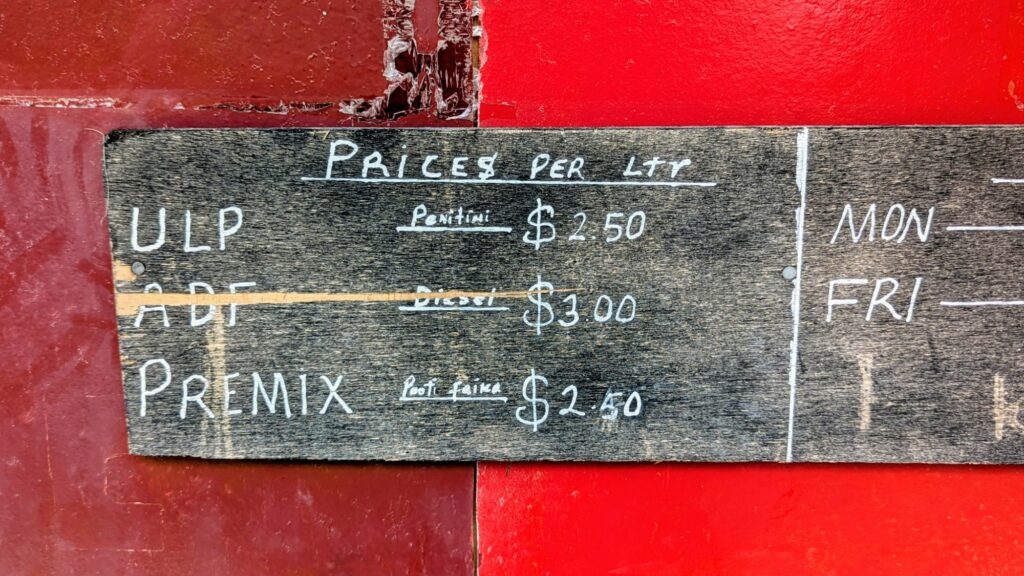 PRICES PER LTR
ULP Penitini $2.50
ADF Diesel $3.00
PREMIX Pooti faika $2.50
MON
FRI